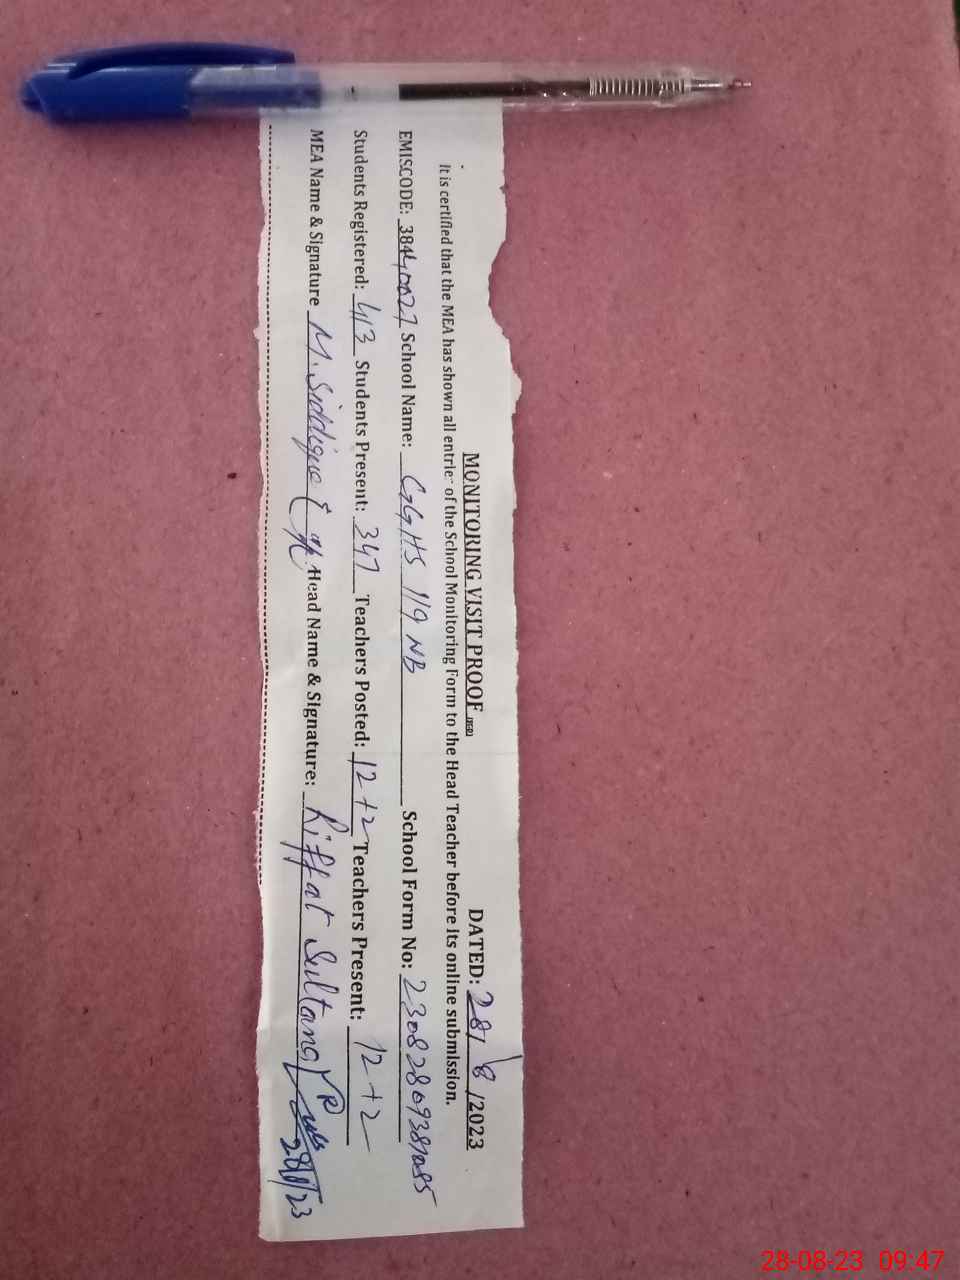 MONITORING VISIT PROOF (SGD) DATED: 28/8/2023
It is certified that the MEA has shown all entries of the School Monitoring Form to the Head Teacher before its online submission.
EMISCODE: 38440027 School Name: GGHS 119 NB School Form No:
Students Registered: 413 Students Present: 347 Teachers Posted: 12+2 Teachers Present: 12+2
MEA Name & Signature M. Siddique Head Name & Signature: Riffat Sultana
28/8/23
28-08-23 09:47